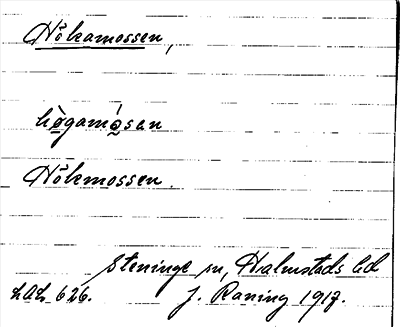 Hökamossen,
hö̀gamó̱san
Hökmossen.
Steninge sn, Halmstads hd
LAL 626. J. Raning 1917.